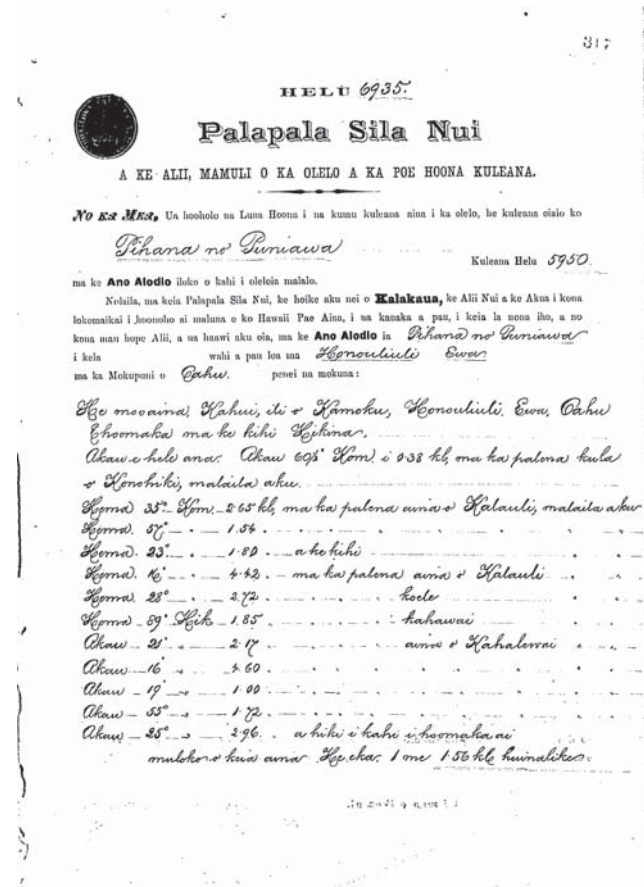 317
HELU 6935.
Palapala Sila Nui
A KE ALII, MAMULI O KA OLELO A KA POE HOONA KULEANA.
No ka Mea, Ua hooholo na Luna Hoona i na kumu kuleana aina i ka olelo, he kuleana oiaio ko
Pihana no Puniawa Kuleana Helu 5950.
ma ke Ano Alodio iloko o kahi i oleloia malalo.
Nolaila, ma keia Palapala Sila Nui, ke hoike aku nei o Kalakaua, ke Alii Nui a ke Akua i kona
lokomaikai i hoonoho ai maluna o ko Hawaii Pae Aina, i na kanaka a pau, i keia la nona iho, a no
kona mau hope Alii, a ua haawi aku oia, ma ke Ano Alodio ia Pihana no Puniawa
i kela wahi a pau loa ma Honouliuli Ewa
ma ka Mokupuni o Oahu. penei na mokuna:
He mooaina, Kahui, ili o Kamoku, Honouliuli, Ewa, Oahu
E hoomaka ma ke kihi Hikina,
Akau e hele ana. Akau 60½° Kom. i 0.38 kb, ma ka palena kula
o Konohiki, malaila aku.
Hema 35° Kom. 2.65 kb, ma ka palena aina o Kalauli, malaila aku
Hema. 57° 1.54
Hema. 23° 1.80 a ke kihi
Hema. 16° 4.42 ma ka palena aina o Kalauli
Hema. 28° 2.72 koele
Hema 89° Hik 1.85 kahawai
Akau 21° 2.17 aina o Kahalewai
Akau 16 .60
Akau 19° 1.00
Akau 55° 1.72
Akau 25° 2.96 a hiki i kahi i hoomaka ai
maloko o keia aina He eka. 1 me 1.56 kb huinalike